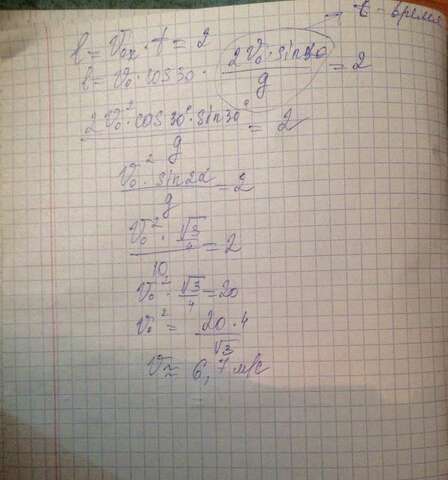 t - время
l = V₀ₓ · t = 2
l = V₀ · cos30 · 2V₀ · sin30 / g = 2
2V₀² · cos30° · sin30° / g = 2
V₀² · sin2α / g = 2
V₀² · √3/4 / 10 = 2
V₀² · √3/4 = 20
V₀² = 20 · 4 / √3
V ≈ 6,7 м/с